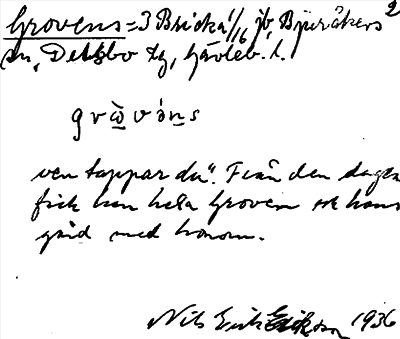 Grovens = 3 Bricka 1/16 jb, Bjuråkers 2
sn, Delsbo tg, Gävleb. l.
g r ὼ̲ v ə́ n̲ s
ven tappar du". Från den dagen
fick han hela Groven ok hans
gård med honom.
Nils Erik Erikson 1936